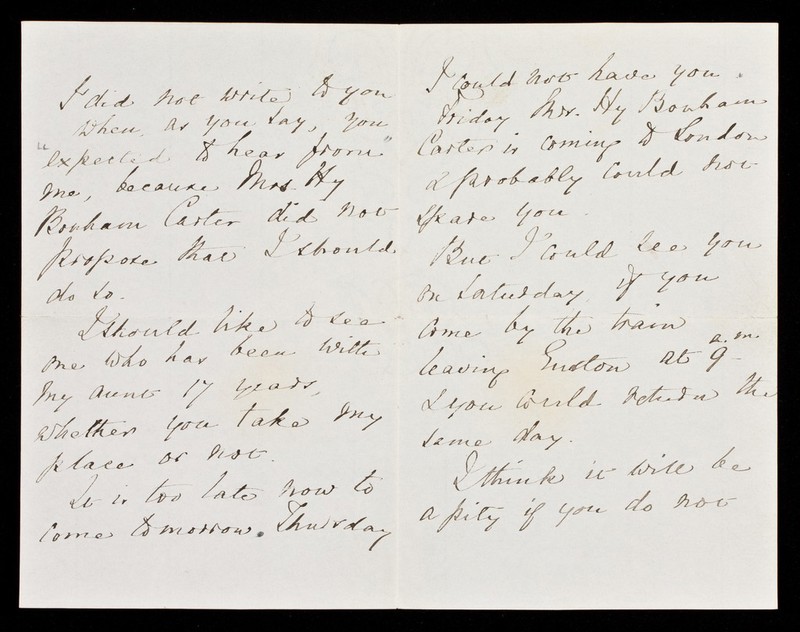 I did not write to you
when, as you say, you
"expected to hear from"
me, because Mrs. Hy
Bonham Carter did not
propose that I should
do so.
I should like to see
one who has been with
my aunt 17 years,
whether you take my
place or not.
It is too late now to
come tomorrow. Thursday
I could not have you.
Friday Mrs. Hy Bonham
Carter is coming to London
& probably could not
spare you.
But I could see you
on Saturday if you
come by the train
leaving Euston at 9 a.m.
& you could return the
same day.
I think it will be
a pity if you do not